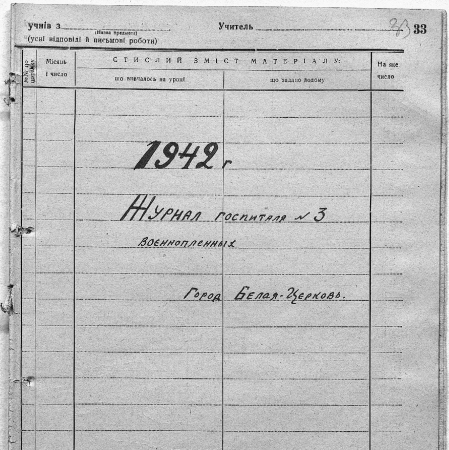 учнів з Учитель 33
(Назва предмета)
(усні відповіді й письмові роботи)
Місяць і число
СТИСЛИЙ ЗМІСТ МАТЕРІАЛУ:
На яке число
що вивчалось на уроці
що задано додому
1942 г
Журнал госпиталя № 3
военнопленных
Город Белая-Церковь.